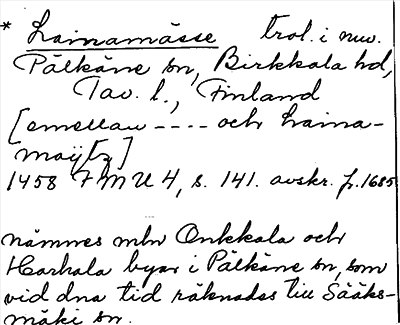 * Lainamässe trol. i nuv.
Pälkäne sn, Birkkala hd,
Tav. l., Finland
[emellan ---- och Laina-
maÿtz]
1458 FMU 4, s. 141. avskr. fr. 1685
nämnes mln Onkkala och
Harhala byar i Pälkäne sn, som
vid dna tid räknades till Sääks-
mäki sn.